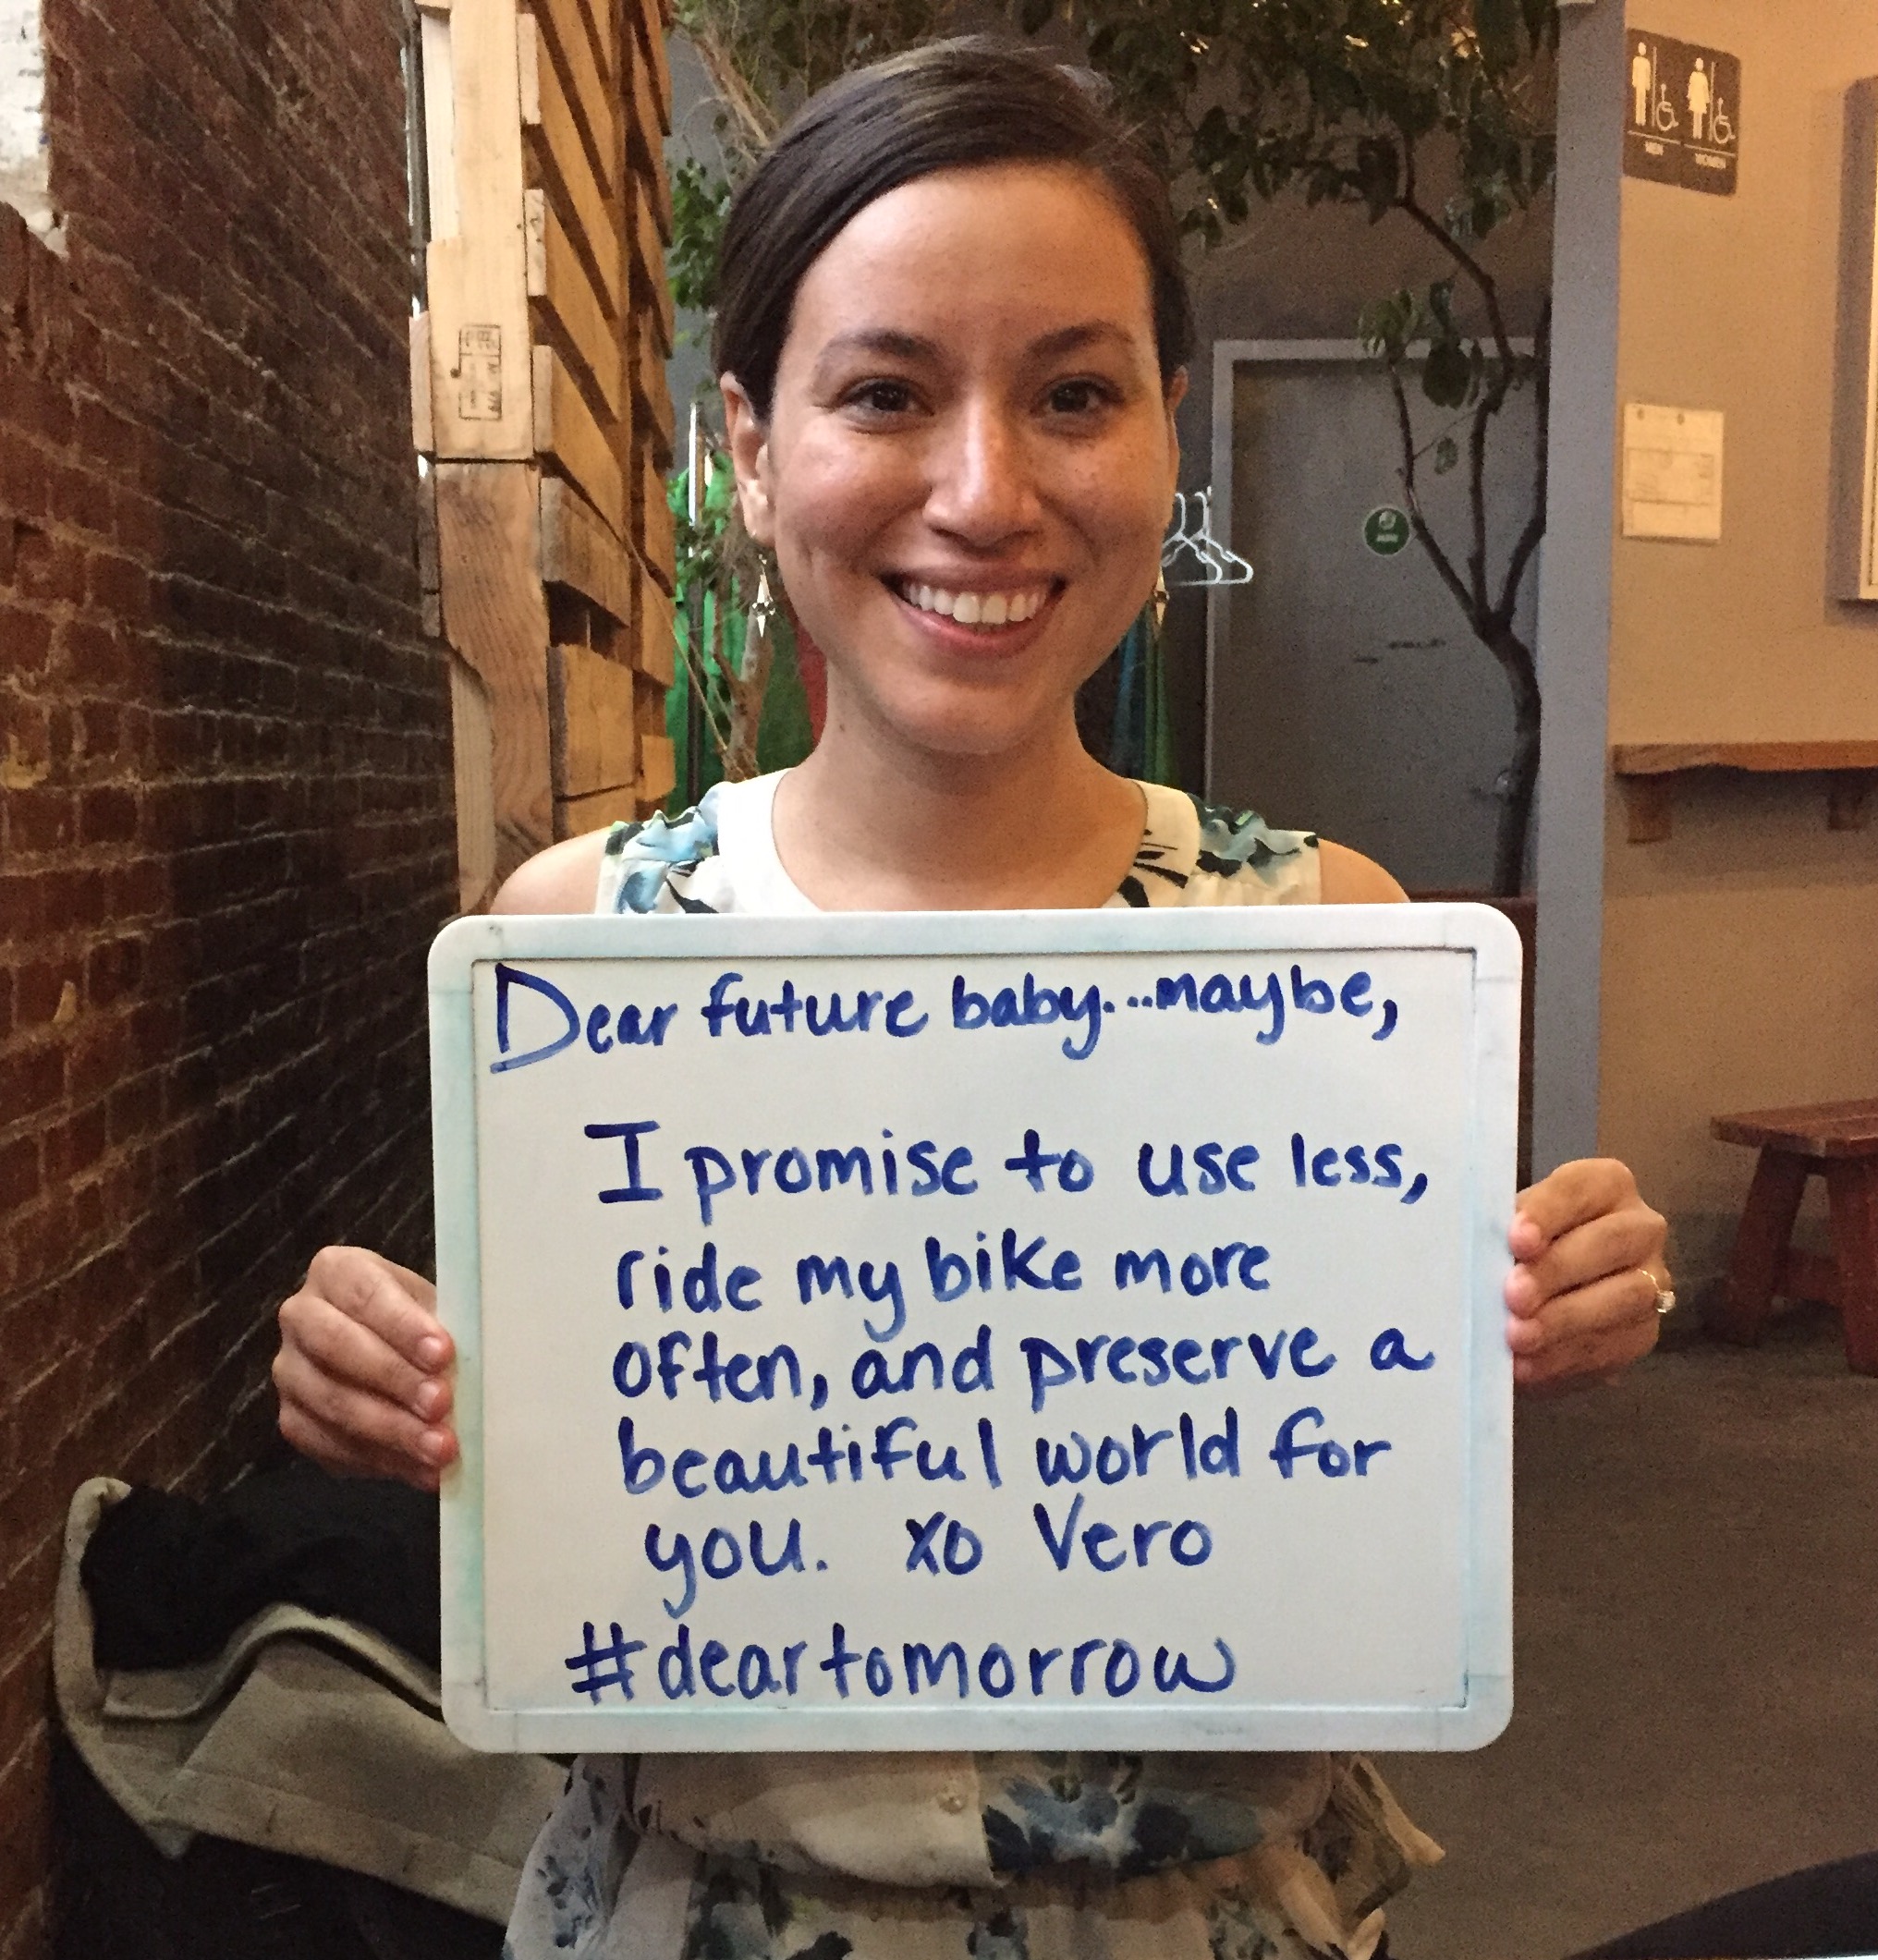 Dear future baby...maybe,
I promise to use less,
ride my bike more
often, and preserve a
beautiful world for
you. xo Vero
#deartomorrow
MEN WOMEN